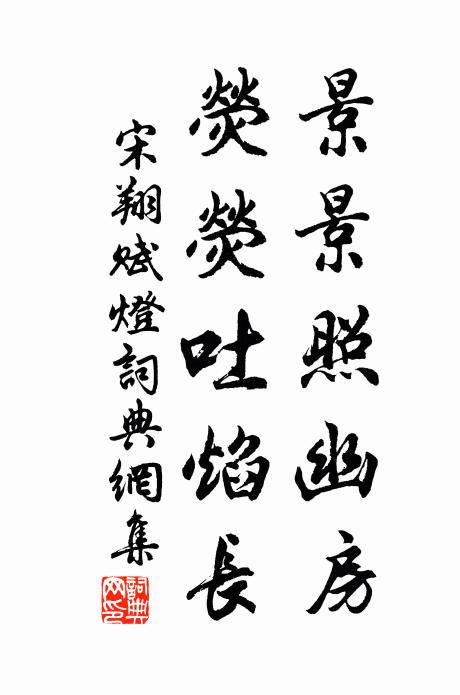 景景照幽房
熒熒吐焰長
宋翔賦燈詞典網集
詞典網印